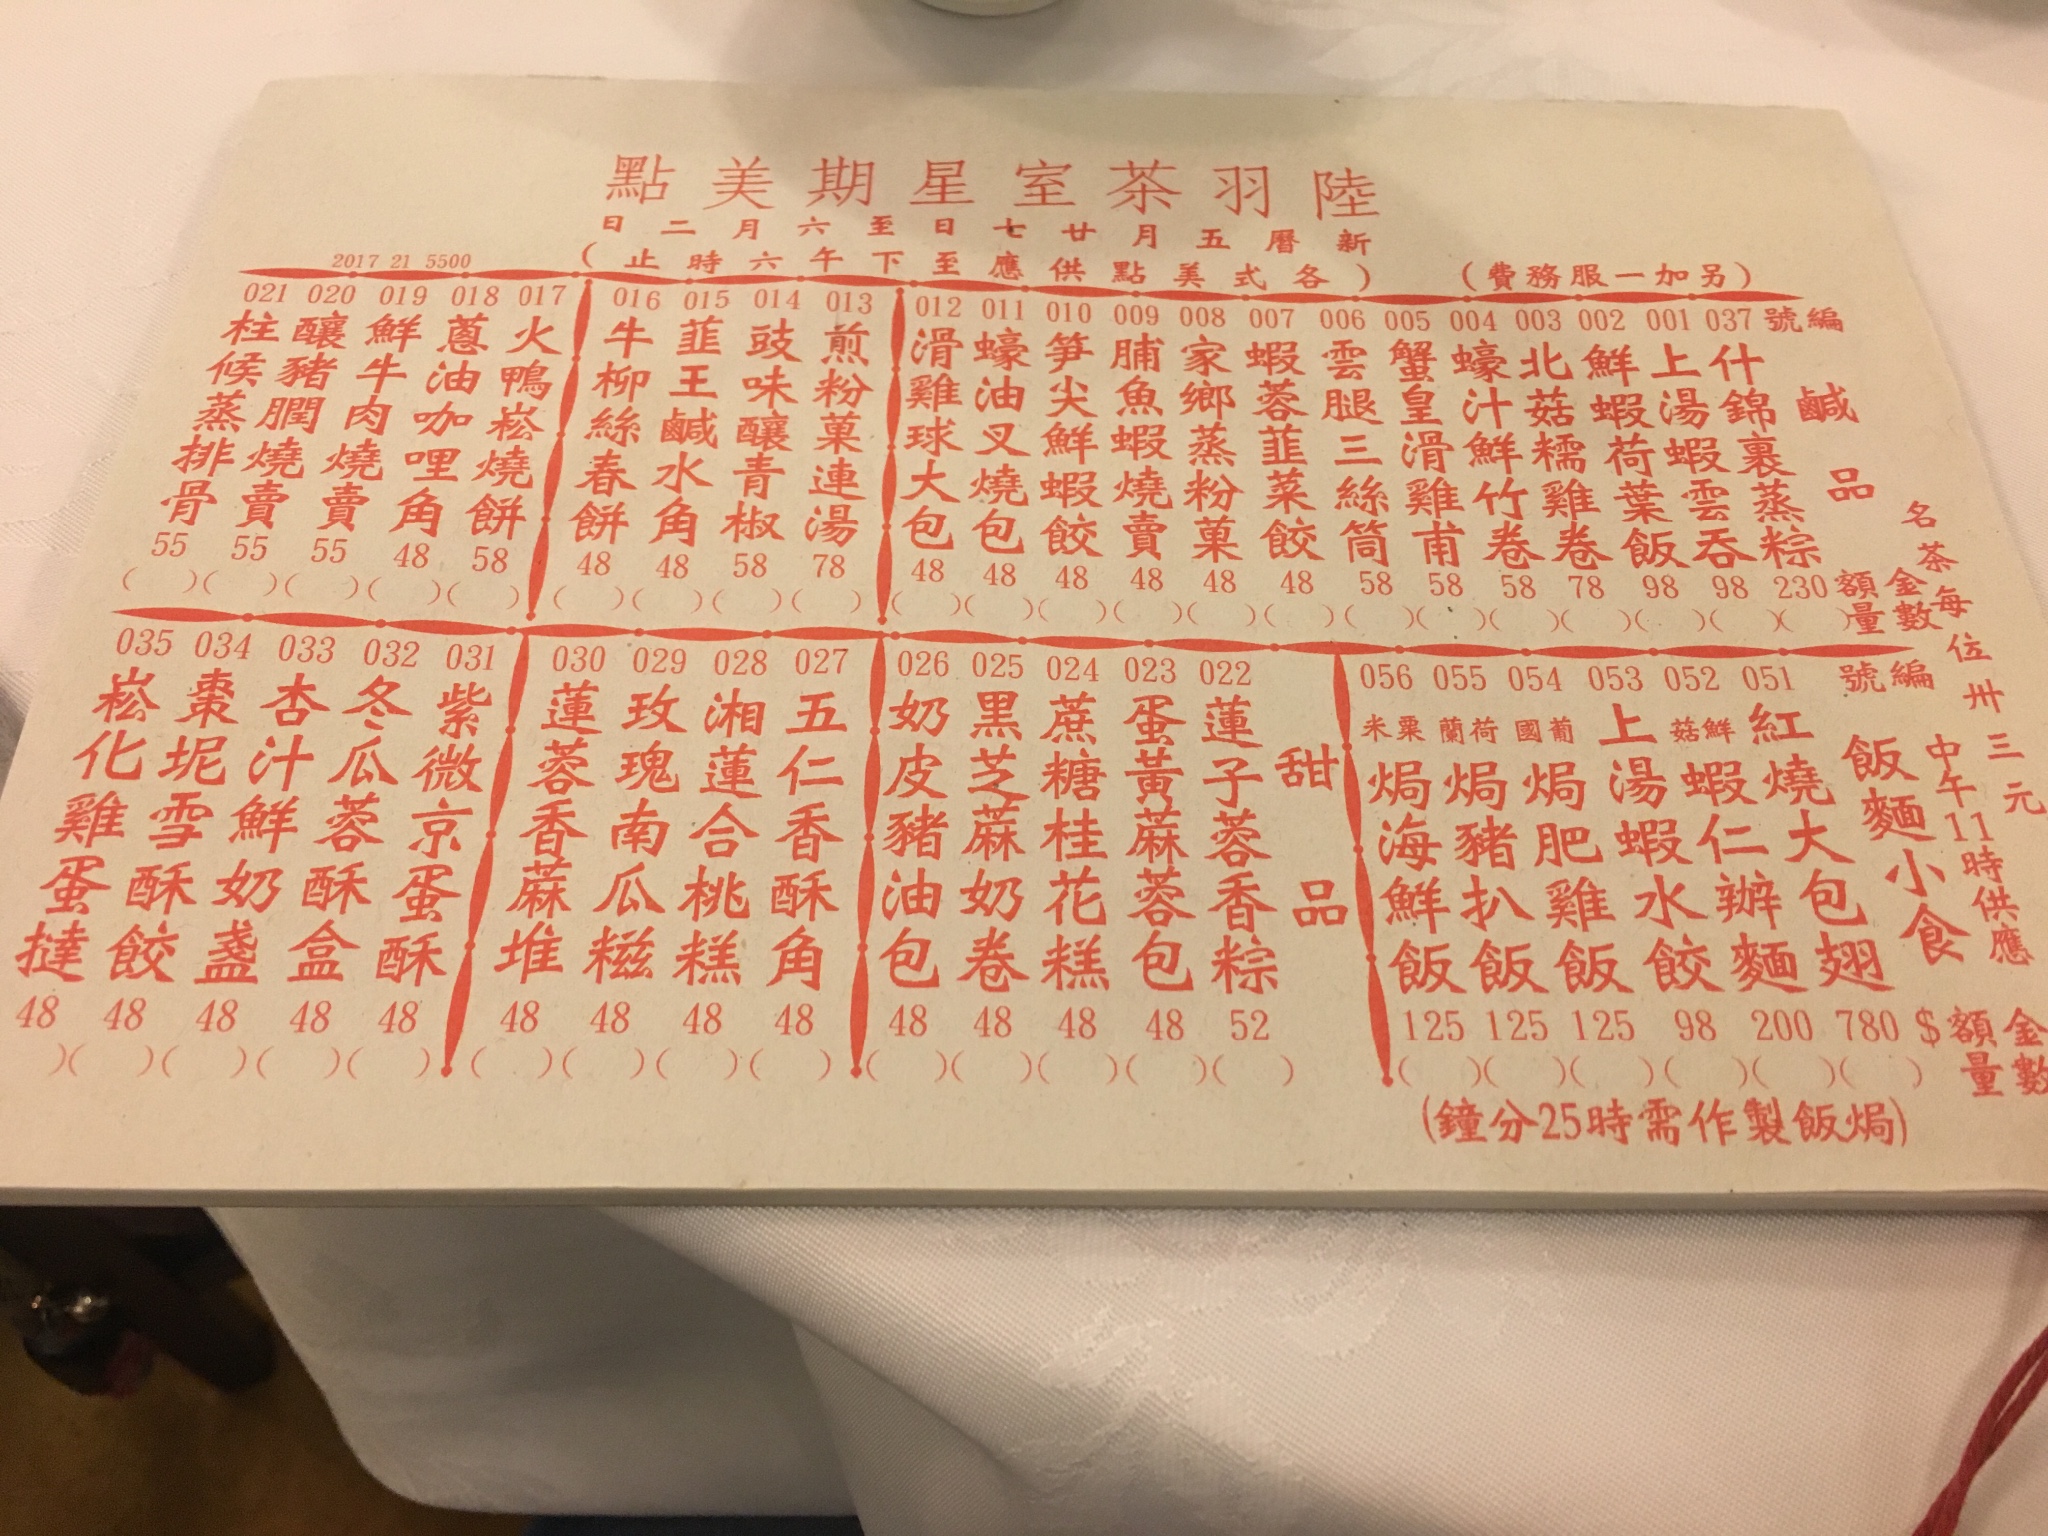 陸羽茶室星期美點
新曆五月廿七日至六月二日
(各式美點供應至下午六時止)
(另加一服務費)
2017 21 5500
編號
鹹品
金額
數量
037 什錦裹蒸粽 230
001 上湯蝦雲吞 98
002 鮮蝦荷葉飯 98
003 北菇糯雞卷 78
004 蠔汁鮮竹卷 58
005 蟹皇滑雞甫 58
006 雲腿三絲筒 58
007 蝦蓉韮菜餃 48
008 家鄉蒸粉菓 48
009 脯魚蝦燒賣 48
010 笋尖鮮蝦餃 48
011 蠔油叉燒包 48
012 滑雞球大包 48
013 煎粉菓連湯 78
014 豉味釀青椒 58
015 韮王鹹水角 48
016 牛柳絲春餅 48
017 火鴨崧燒餅 58
018 蔥油咖哩角 48
019 鮮牛肉燒賣 55
020 釀豬膶燒賣 55
021 柱候蒸排骨 55
名茶每位卅三元
中午11時供應
編號
飯麵小食
金額$
數量
051 紅燒大包翅 780
052 鮮菇蝦仁辦麵 200
053 上湯蝦水餃 98
054 葡國焗肥雞飯 125
055 荷蘭焗豬扒飯 125
056 粟米焗海鮮飯 125
(焗飯製作需時25分鐘)
甜品
022 蓮子蓉香粽 52
023 蛋黃蔴蓉包 48
024 蔗糖桂花糕 48
025 黑芝蔴奶卷 48
026 奶皮豬油包 48
027 五仁香酥角 48
028 湘蓮合桃糕 48
029 玫瑰南瓜糍 48
030 蓮蓉香蔴堆 48
031 紫微京蛋酥 48
032 冬瓜蓉酥盒 48
033 杏汁鮮奶盞 48
034 棗坭雪酥餃 48
035 崧化雞蛋撻 48